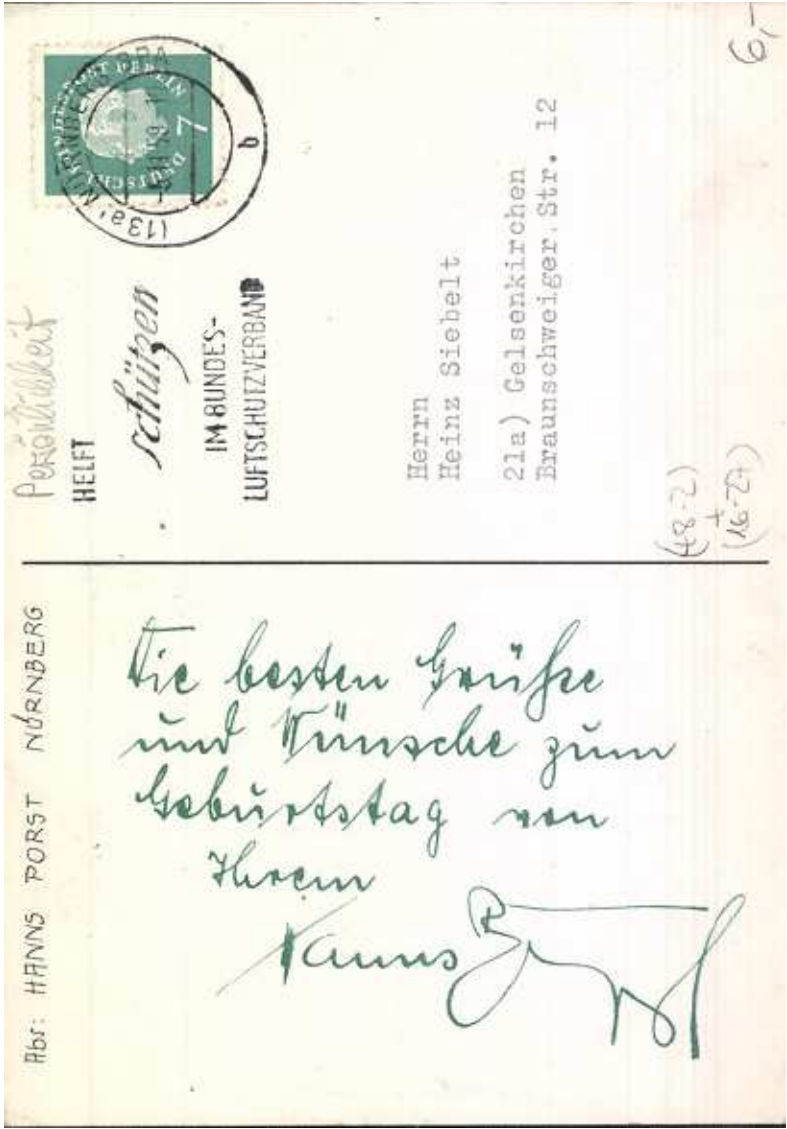 Abs: HANNS PORST NÜRNBERG
Die besten Grüße
und Wünsche zum
Geburtstag von
Ihrem
Hanns Porst
Persönlichkeit
HELFT
schützen
IM BUNDES-
LUFTSCHUTZVERBAND
DEUTSCHE BUNDESPOST BERLIN
7
(13a) NÜRNBERG
b
Herrn
Heinz Siebelt
21a) Gelsenkirchen
Braunschweiger.Str. 12
(48-2)
+
(16-27)
6,-